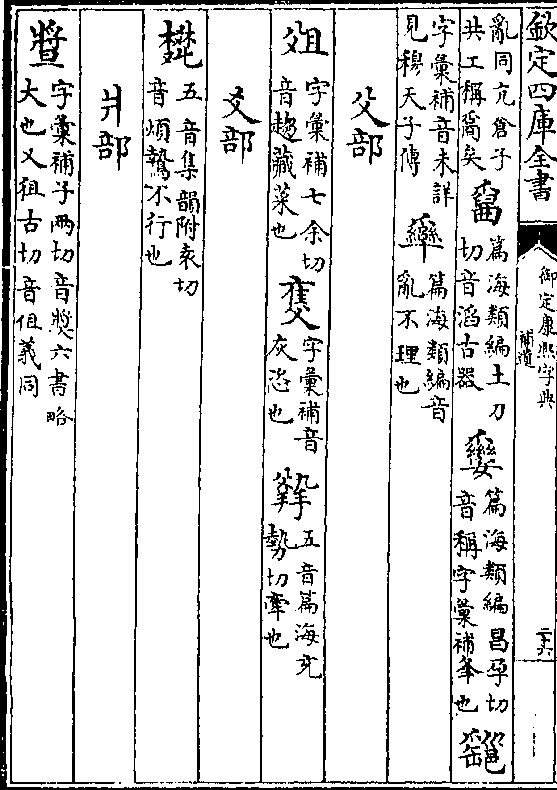 欽定四庫全書
御定康熙字典
補遺
二十六
亂同亢倉子
共工稱矣
篇海類編土刀
切音滔古器
篇海類編昌孕切
音稱字彙補也
字彙補音未詳
見穆天子傳
篇海類編音
亂不理也
父部
字彙補七余切
音趨藏菜也
字彙補音
灰恣也
五音篇海充
勢切牽也
爻部
五音集韻附袁切
音煩鷙不行也
爿部
字彙補子兩切音奬六書略
大也又徂古切音伹義同